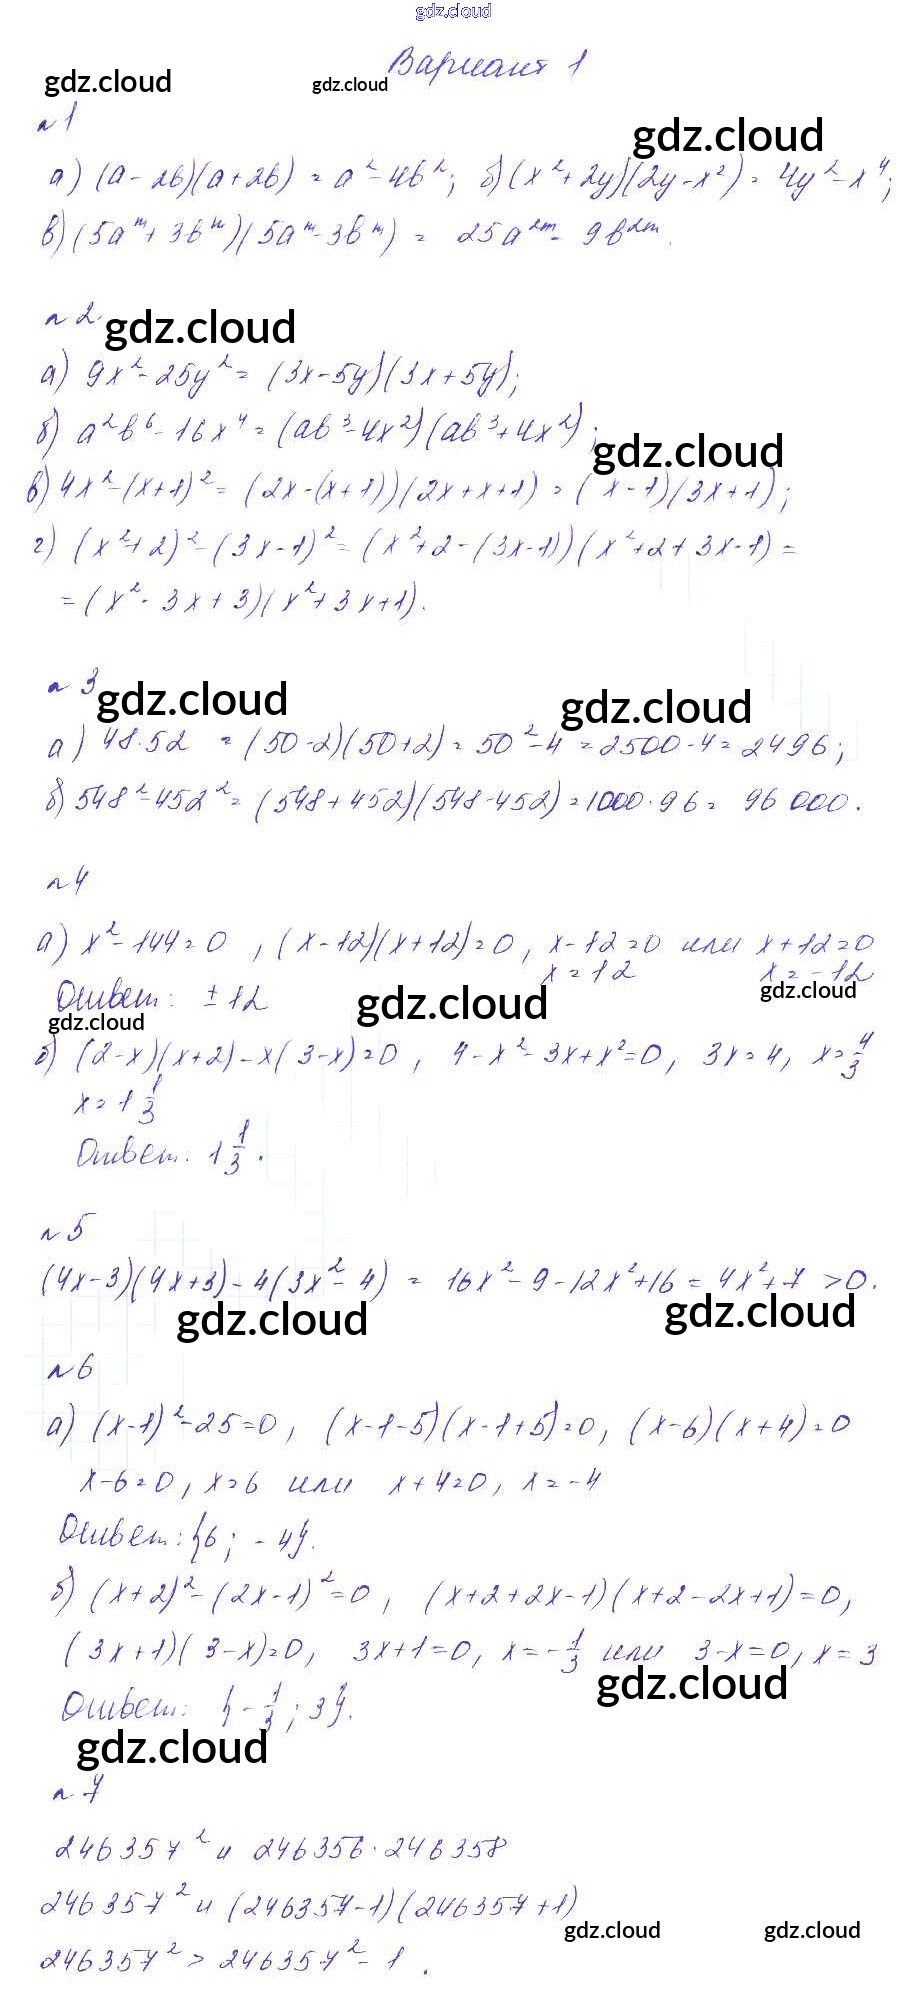 gdz.cloud
Вариант 1
gdz.cloud gdz.cloud
n 1
gdz.cloud
а) (a - 2b)(a + 2b) = a² - 4b²; б) (x² + 2y)(2y - x²) = 4y² - x⁴;
в) (5aᵐ + 3bᵐ)(5aᵐ - 3bᵐ) = 25a²ᵐ - 9b²ᵐ.
n 2.
gdz.cloud
а) 9x² - 25y² = (3x - 5y)(3x + 5y);
б) a²b⁶ - 16x⁴ = (ab³ - 4x²)(ab³ + 4x²);
gdz.cloud
в) 4x² - (x+1)² = (2x - (x+1))(2x + x + 1) = (x - 1)(3x + 1);
г) (x² + 2)² - (3x - 1)² = (x² + 2 - (3x - 1))(x² + 2 + 3x - 1) =
= (x² - 3x + 3)(x² + 3x + 1).
n 3
gdz.cloud gdz.cloud
а) 48 · 52 = (50 - 2)(50 + 2) = 50² - 4 = 2500 - 4 = 2496;
б) 548² - 452² = (548 + 452)(548 - 452) = 1000 · 96 = 96 000.
n 4
а) x² - 144 = 0, (x - 12)(x + 12) = 0, x - 12 = 0 или x + 12 = 0
x = 12 x = - 12
Ответ: ± 12
gdz.cloud gdz.cloud
gdz.cloud
б) (2 - x)(x + 2) - x(3 - x) = 0, 4 - x² - 3x + x² = 0, 3x = 4, x = 4/3
x = 1 1/3
Ответ: 1 1/3.
n 5
(4x - 3)(4x + 3) - 4(3x² - 4) = 16x² - 9 - 12x² + 16 = 4x² + 7 > 0.
gdz.cloud gdz.cloud
n 6
а) (x - 1)² - 25 = 0, (x - 1 - 5)(x - 1 + 5) = 0, (x - 6)(x + 4) = 0
x - 6 = 0, x = 6 или x + 4 = 0, x = - 4
Ответ: {6; - 4}.
б) (x + 2)² - (2x - 1)² = 0, (x + 2 + 2x - 1)(x + 2 - 2x + 1) = 0,
(3x + 1)(3 - x) = 0, 3x + 1 = 0, x = - 1/3 или 3 - x = 0, x = 3
gdz.cloud
Ответ: {- 1/3; 3}.
gdz.cloud
n 7
246357² и 246356 · 246358
246357² и (246357 - 1)(246357 + 1)
gdz.cloud gdz.cloud
246357² > 246357² - 1.